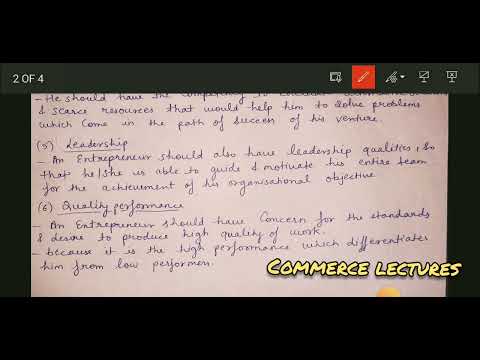 2 OF 4
- He should have the competency to
& scarce resources that would help him to solve problems
which come in the path of success of his venture.
(5) Leadership
- An Entrepreneur should also have leadership qualities, so
that he/she is able to guide & motivate his entire team
for the achievement of his organisational objective
(6) Quality performance
- An Entrepreneur should have Concern for the standards
& desire to produce high quality of work.
- because it is the high performance which differentiates
him from low performers.
COMMERCE LECTURES